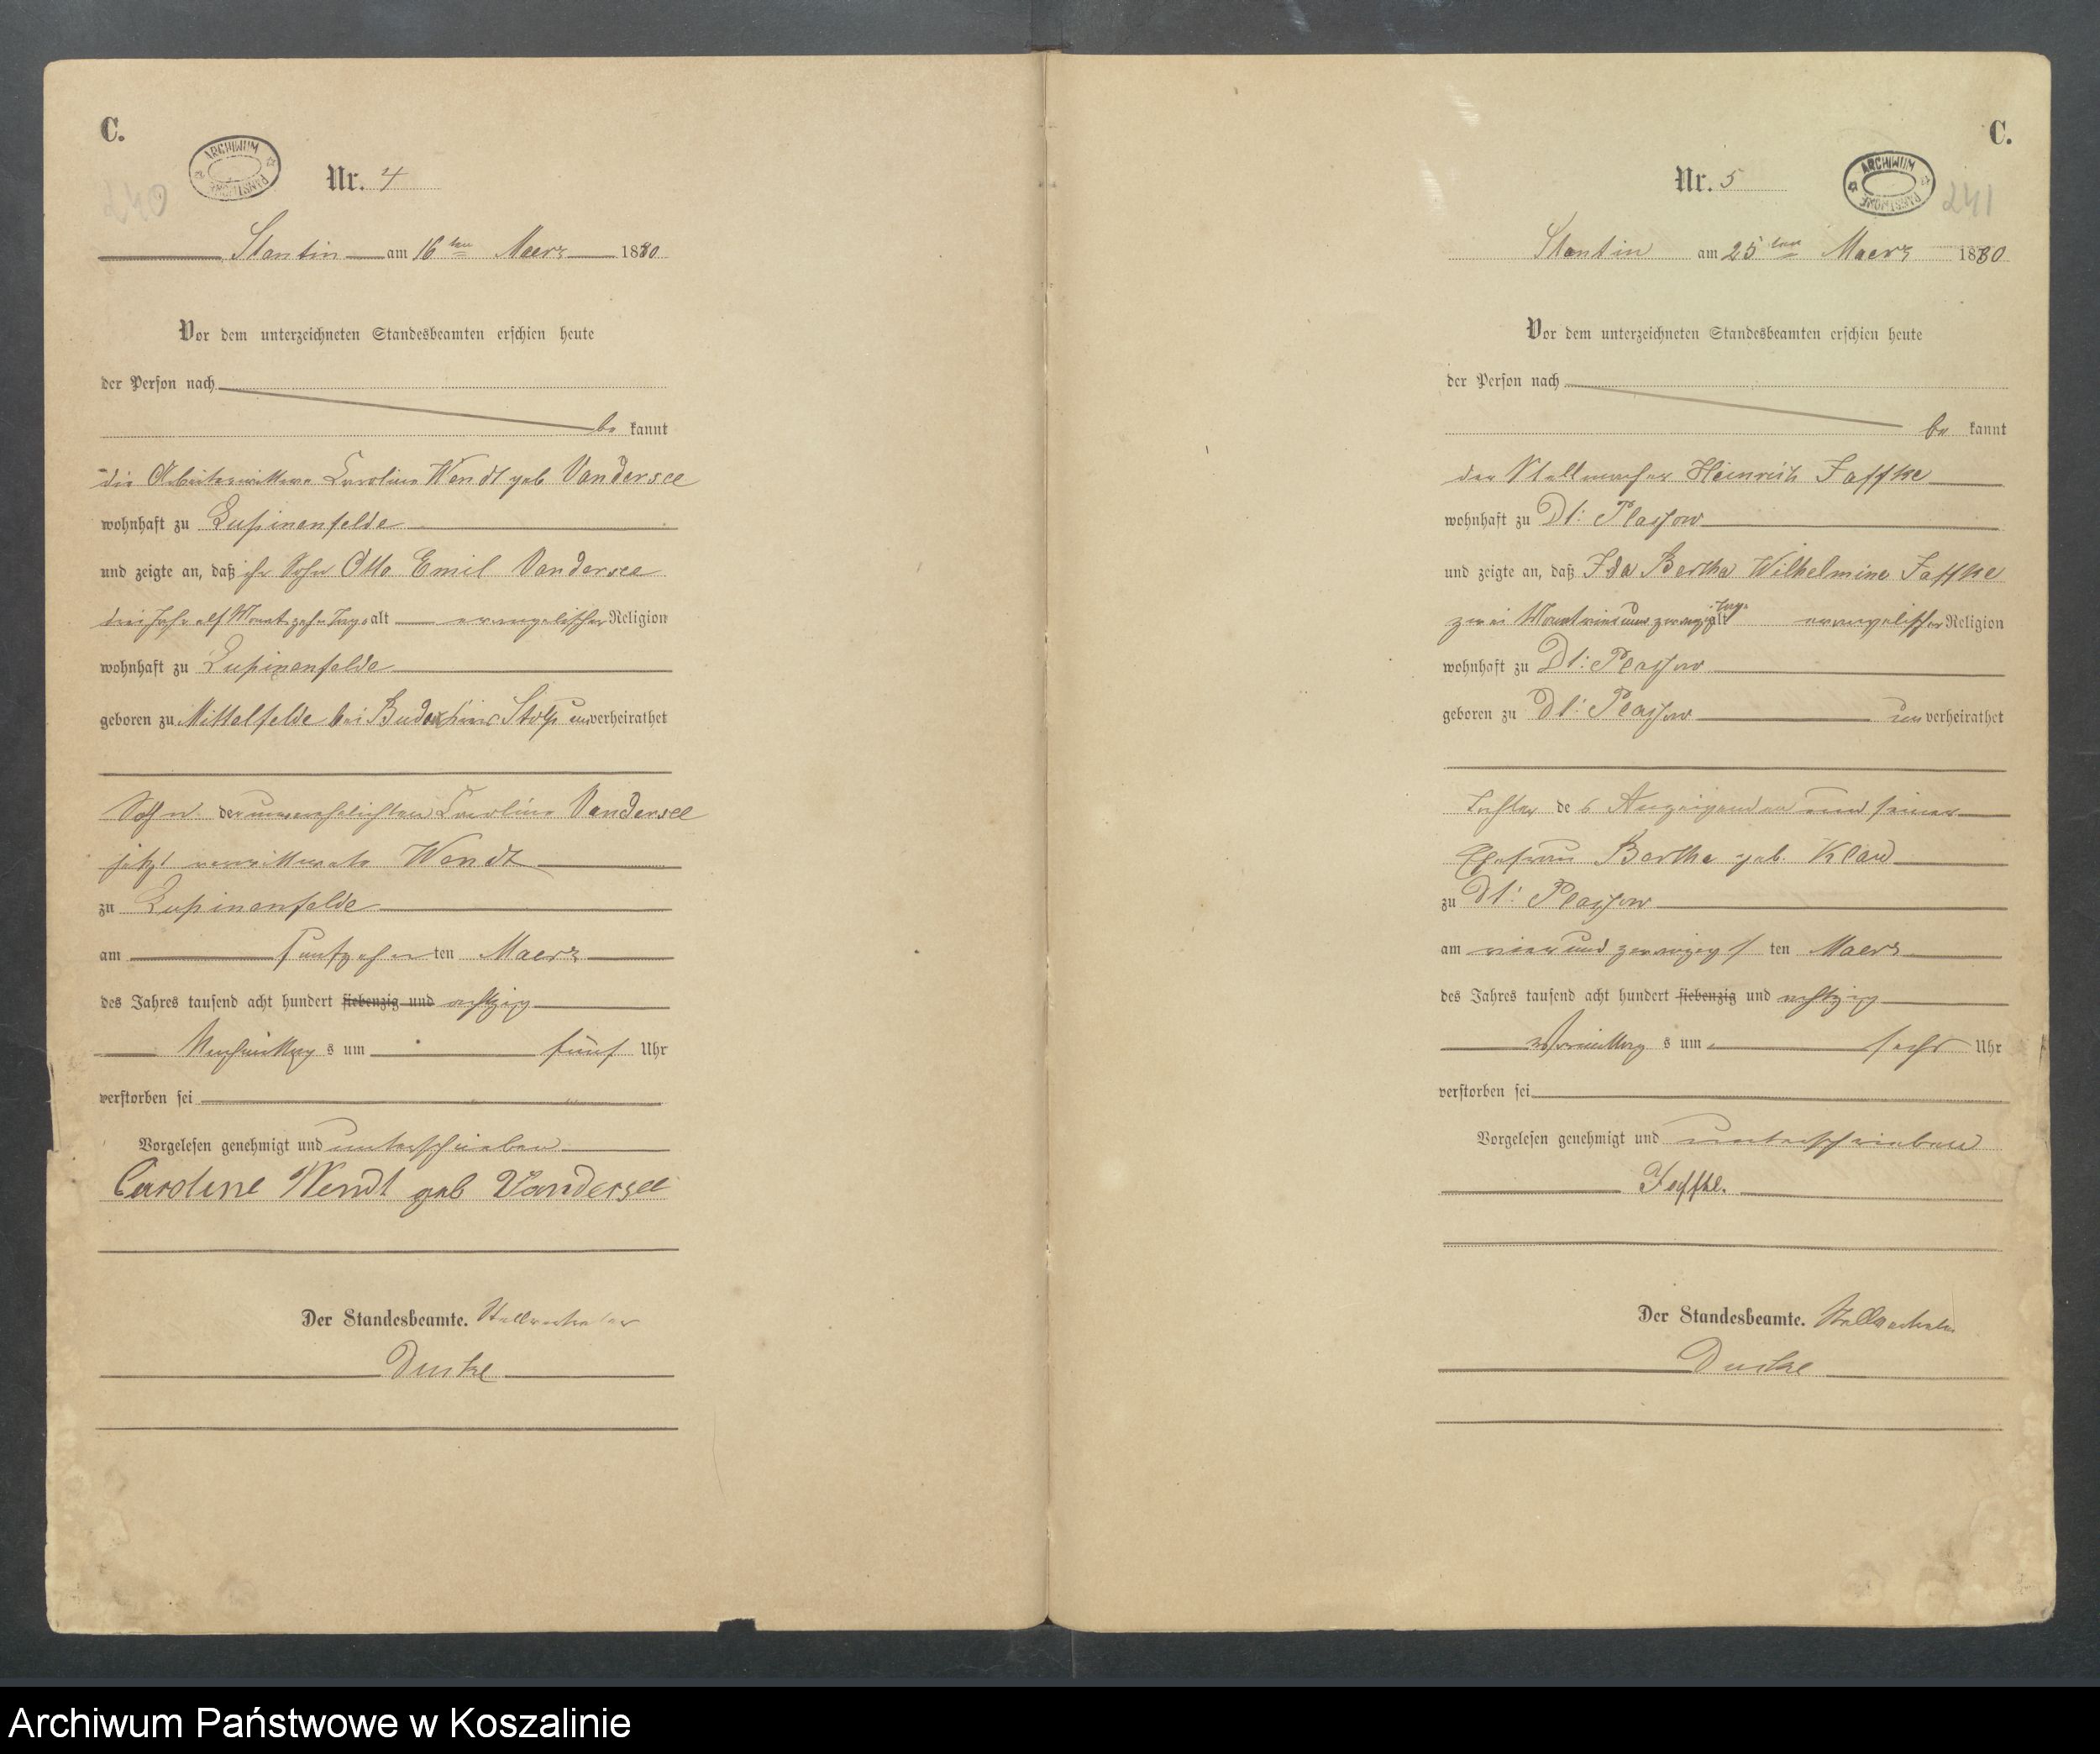 C.
ARCHIWUM PAŃSTWOWE
240
Nr. 4
Stantin am 16ten Maerz 1880
Vor dem unterzeichneten Standesbeamten erschien heute
der Person nach
be kannt
die Arbeiterwittwe Caroline Wendt geb Vandersee
wohnhaft zu Lupinenfelde
und zeigte an, daß ihr Sohn Otto Emil Vandersee
drei Jahr elf Monat zehn Tage alt evangelischer Religion
wohnhaft zu Lupinenfelde
geboren zu Mittelfelde bei Stolp unverheirathet
Sohn der unverehelichten Caroline Vandersee
jetzt verwittwete Wendt
zu Lupinenfelde
am funfzehnten Maerz
des Jahres tausend acht hundert siebenzig und achtzig
Nachmittags um fünf Uhr
verstorben sei
Vorgelesen genehmigt und unterschrieben
Caroline Wendt geb Vandersee
Der Standesbeamte. Stellvertreter
C.
ARCHIWUM PAŃSTWOWE
241
Nr. 5
Stantin am 25ten Maerz 1880
Vor dem unterzeichneten Standesbeamten erschien heute
der Person nach
be kannt
der Stellmacher Heinrich Jaffke
wohnhaft zu Dt: Plassow
und zeigte an, daß Ida Bertha Wilhelmine Jaffke
zwei Monat vierundzwanzig Tage alt evangelischer Religion
wohnhaft zu Dt: Plassow
geboren zu Dt: Plassow unverheirathet
Tochter des Anzeigenden und seiner
Ehefrau Bertha geb. Klaw
zu Dt: Plassow
am vierundzwanzigsten Maerz
des Jahres tausend acht hundert siebenzig und achtzig
Vormittags um sechs Uhr
verstorben sei
Vorgelesen genehmigt und unterschrieben
Jaffke.
Der Standesbeamte. Stellvertreter
Archiwum Państwowe w Koszalinie